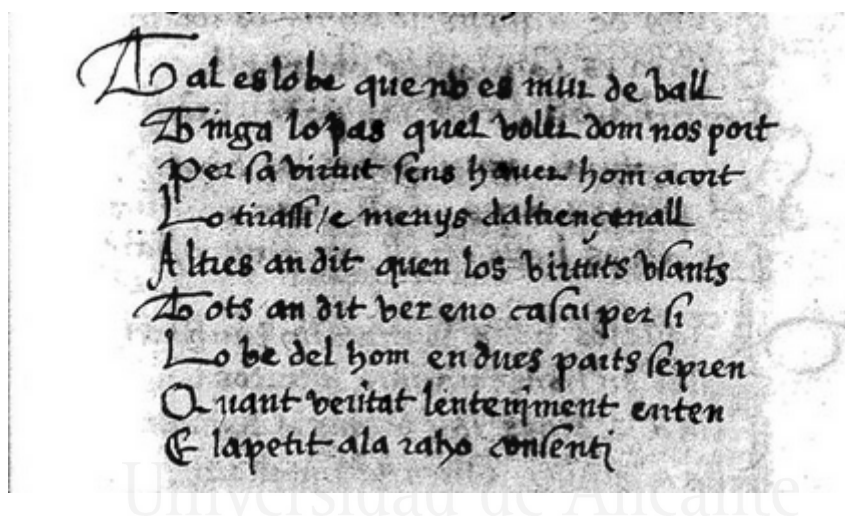 Tal es lo be que no es mur de vall
Tinga lo pas quel voler dom nos port
Per sa virtut sens hauer hom acort
Lo tirassi / e menys daltren çenall
Altres an dit quen los virtuts vsants
Tots an dit ver e no cascu per si
Lo be del hom en dues parts sepren
Quant veritat lenteniment enten
E lapetit ala raho consenti
Universidad de Alicante